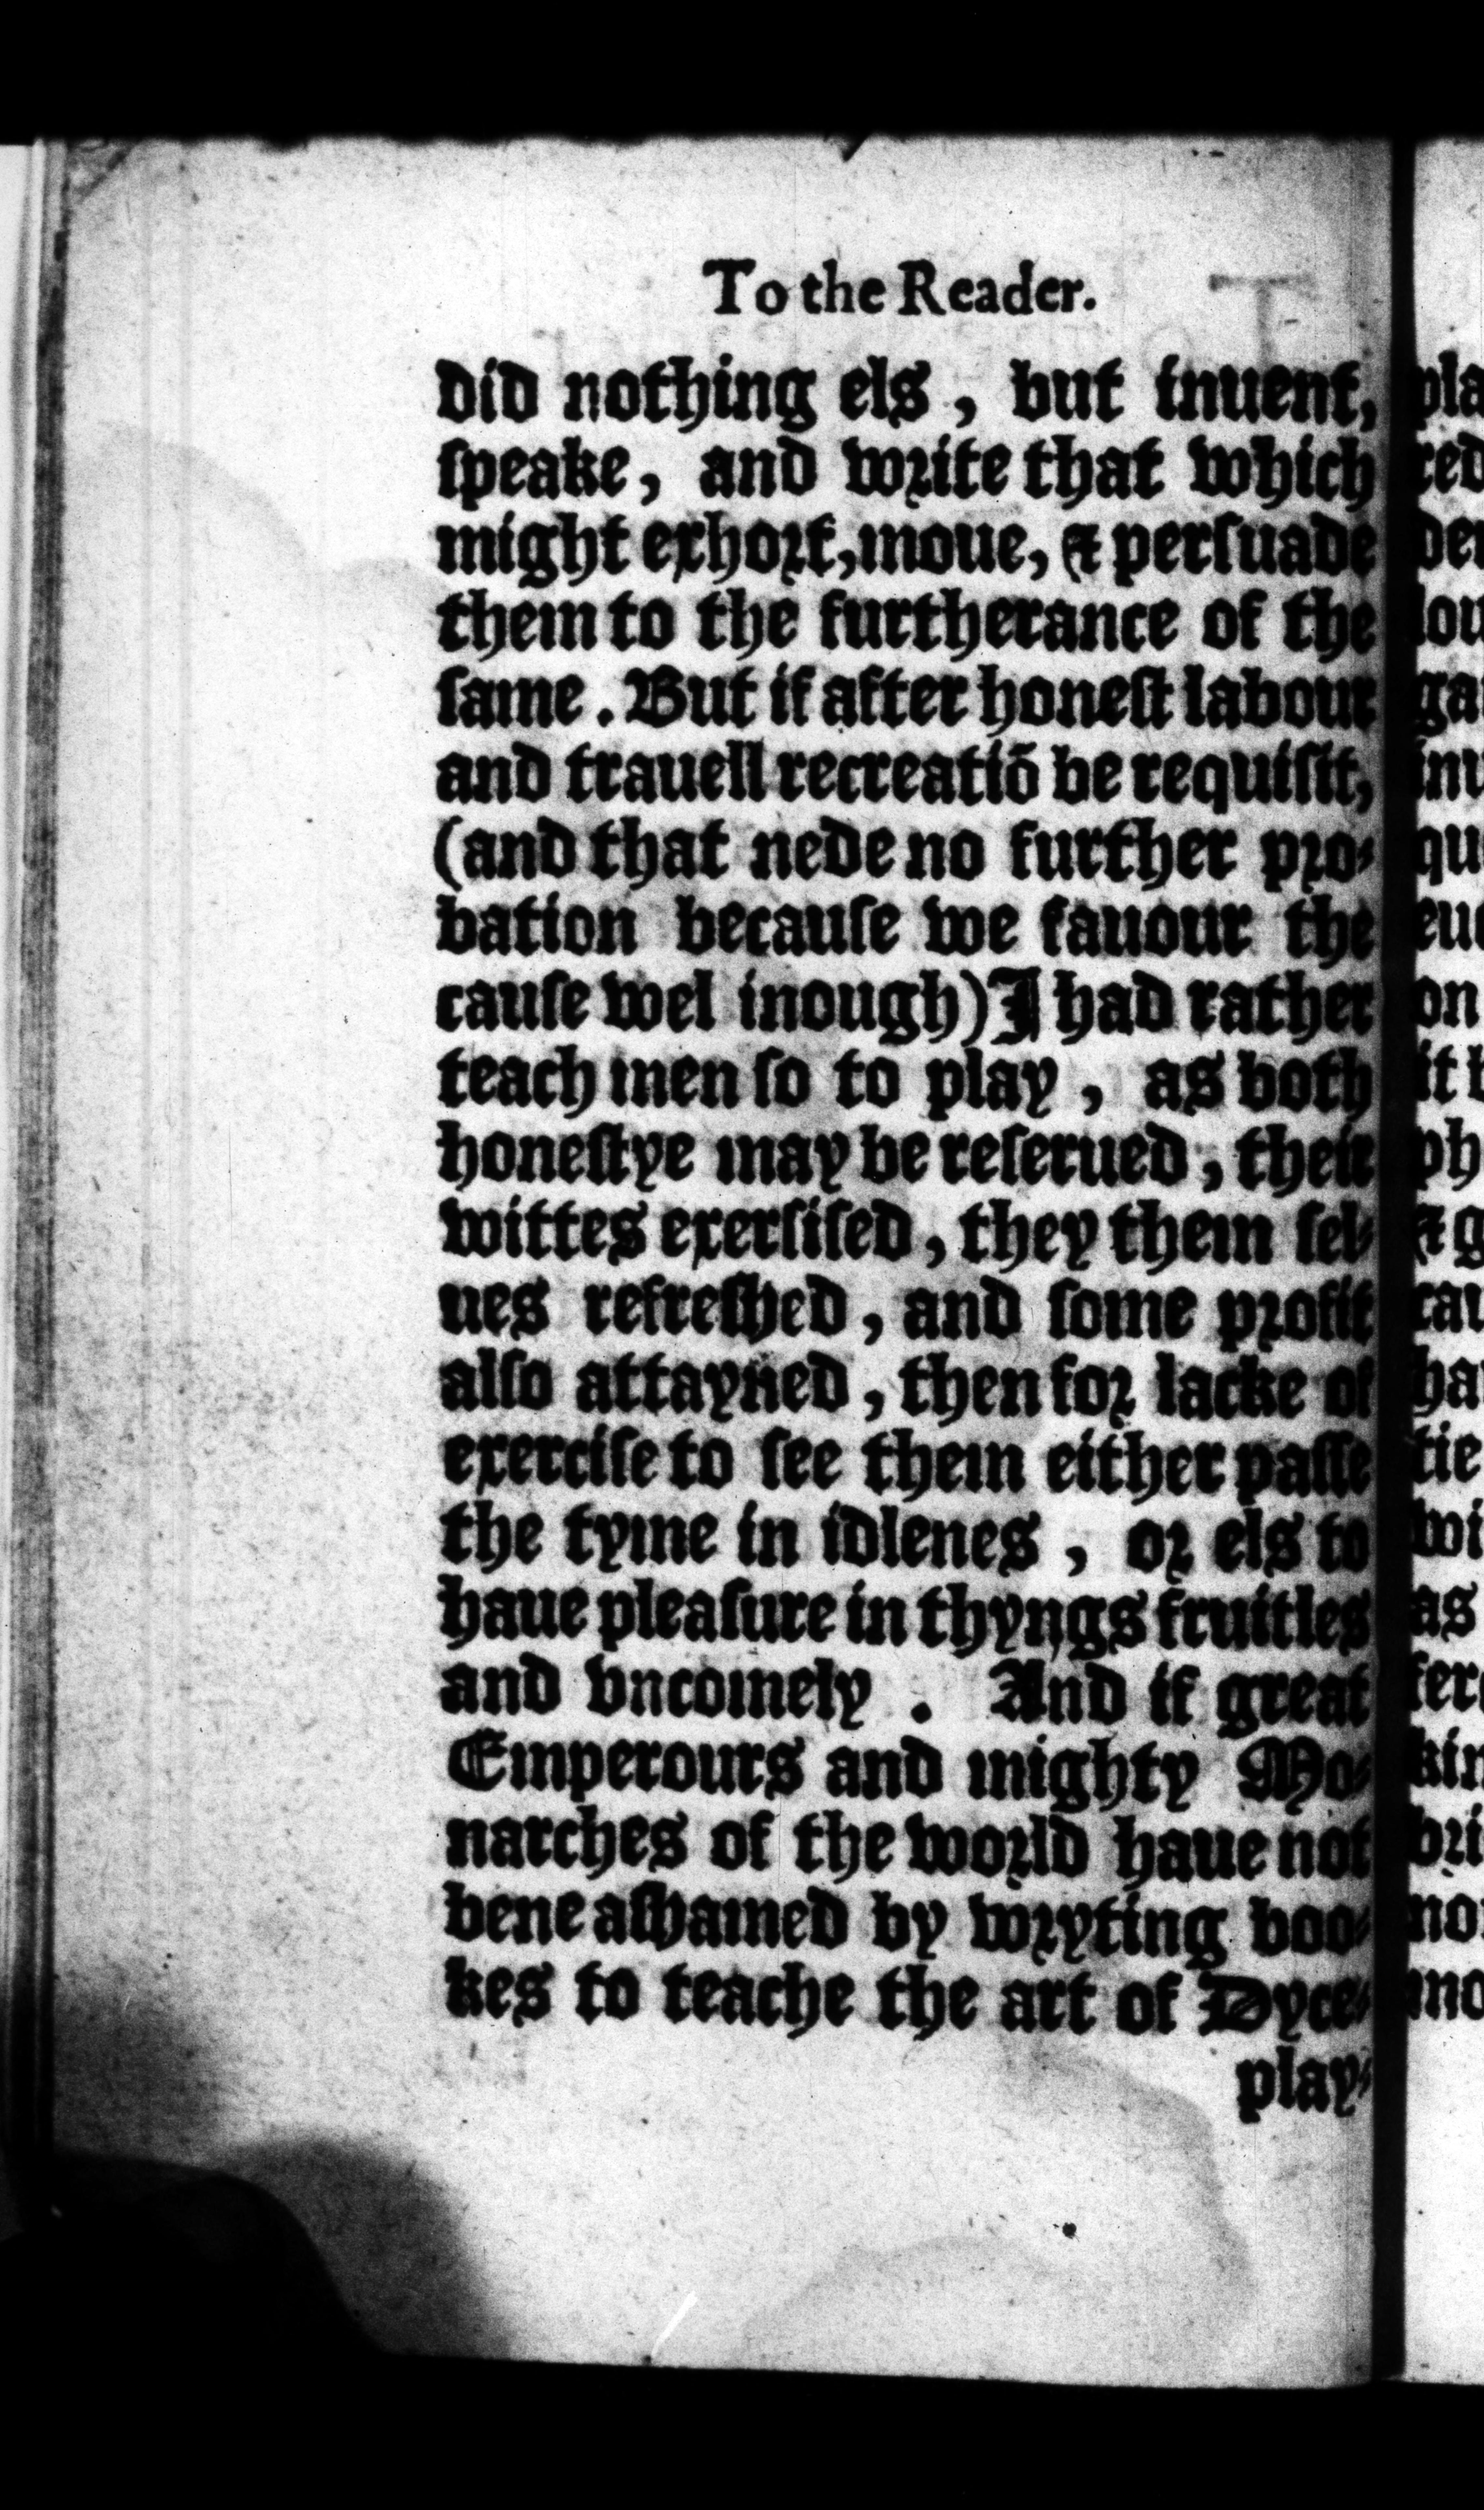 To the Reader.
did nothing els, but inuent,
ſpeake, and write that which
might exhort, moue, & perſuade
them to the furtherance of the
ſame. But if after honeſt labour
and trauell recreatiō be requiſit,
(and that nede no further pro-
bation becauſe we fauour the
cauſe wel inough) I had rather
teach men ſo to play, as both
honeſtye may be reſerued, their
wittes exerſiſed, they them ſel-
ues refreſhed, and ſome profit
alſo attayned, then for lacke of
exerciſe to ſee them either paſſe
the tyme in idlenes, or els to
haue pleaſure in thyngs fruitles
and vncomely. And if great
Emperours and mighty Mo-
narches of the world haue not
bene aſhamed by wryting boo-
kes to teache the art of Dyce-
play-